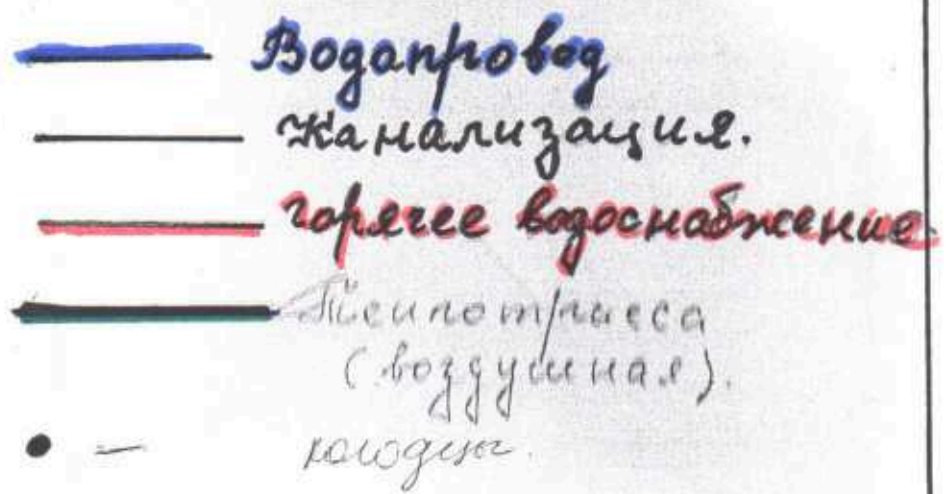 Водопровод
Канализация.
горячее водоснабжение.
Теплотрасса
(воздушная).
— колодцы.